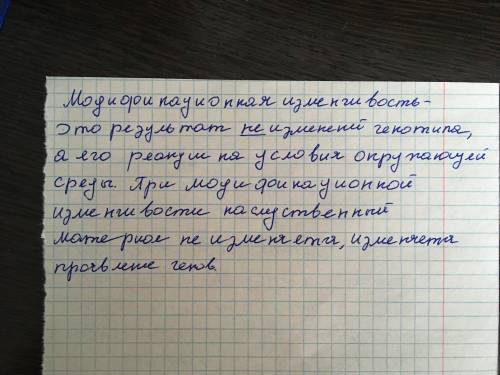 Модификационная изменчивость-
это результат не изменений генотипа,
а его реакции на условия окружающей
среды. При модификационной
изменчивости наследственный
материал не изменяется, изменяется
проявление генов.